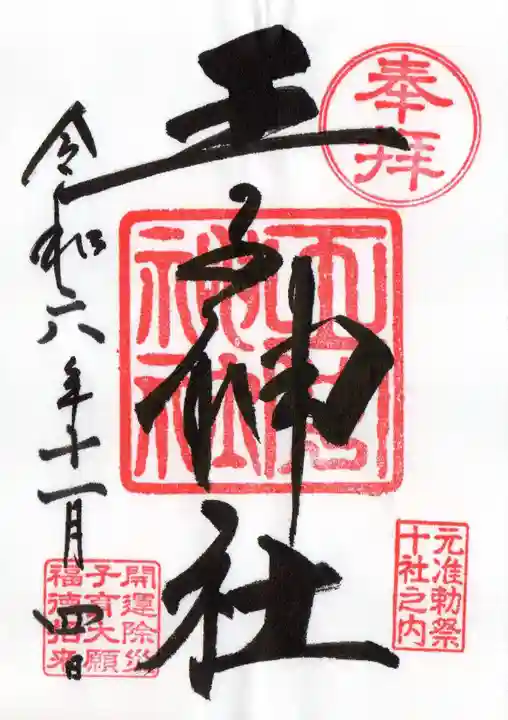 奉拝
王子神社
元准勅祭
十社之内
令和六年十一月四日
開運除災
子育大願
福徳出来